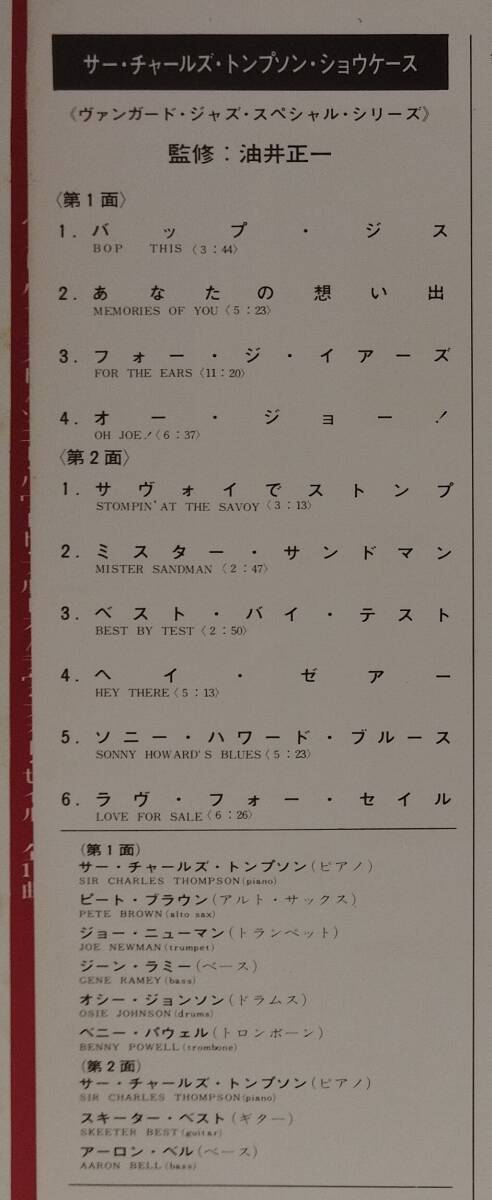 サー・チャールズ・トンプソン・ショウケース
《ヴァンガード・ジャズ・スペシャル・シリーズ》
監修：油井正一
〈第1面〉
1. バップ・ジス
BOP THIS〈3：44〉
2. あなたの想い出
MEMORIES OF YOU〈5：23〉
3. フォー・ジ・イアーズ
FOR THE EARS〈11：20〉
4. オー・ジョー！
OH JOE！〈6：37〉
〈第2面〉
1. サヴォイでストンプ
STOMPIN' AT THE SAVOY〈3：13〉
2. ミスター・サンドマン
MISTER SANDMAN〈2：47〉
3. ベスト・バイ・テスト
BEST BY TEST〈2：50〉
4. ヘイ・ゼアー
HEY THERE〈5：13〉
5. ソニー・ハワード・ブルース
SONNY HOWARD'S BLUES〈5：23〉
6. ラヴ・フォー・セイル
LOVE FOR SALE〈6：26〉
(第1面)
サー・チャールズ・トンプソン(ピアノ)
SIR CHARLES THOMPSON(piano)
ピート・ブラウン(アルト・サックス)
PETE BROWN(alto sax)
ジョー・ニューマン(トランペット)
JOE NEWMAN(trumpet)
ジーン・ラミー(ベース)
GENE RAMEY(bass)
オシー・ジョンソン(ドラムス)
OSIE JOHNSON(drums)
ベニー・パウェル(トロンボーン)
BENNY POWELL(trombone)
(第2面)
サー・チャールズ・トンプソン(ピアノ)
SIR CHARLES THOMPSON(piano)
スキーター・ベスト(ギター)
SKEETER BEST(guitar)
アーロン・ベル(ベース)
AARON BELL(bass)